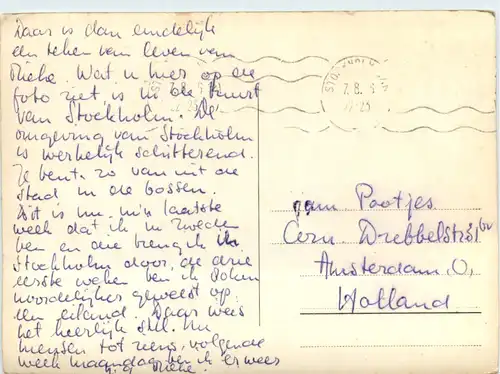 Daar is dan eindelijk
een teken van leven van
Rieke. Wat u hier op de
foto ziet is in de buurt
van Stockholm. De
omgeving van Stockholm
is werkelijk schitterend.
Je bent zo van uit de
stad in de bossen.
Dit is nu m'n laatste
week dat ik in Zweden
ben en die breng ik in
Stockholm door, de drie
eerste weken ben ik
noordelijker geweest op
een eiland. Daar was
het heerlijk stil. Nu
mensen tot ziens, volgende
week maandag ben ik er weer
Rieke.
7.8.
fam Pootjes
Corn. Drebbelstr.
Amsterdam, O,
Holland